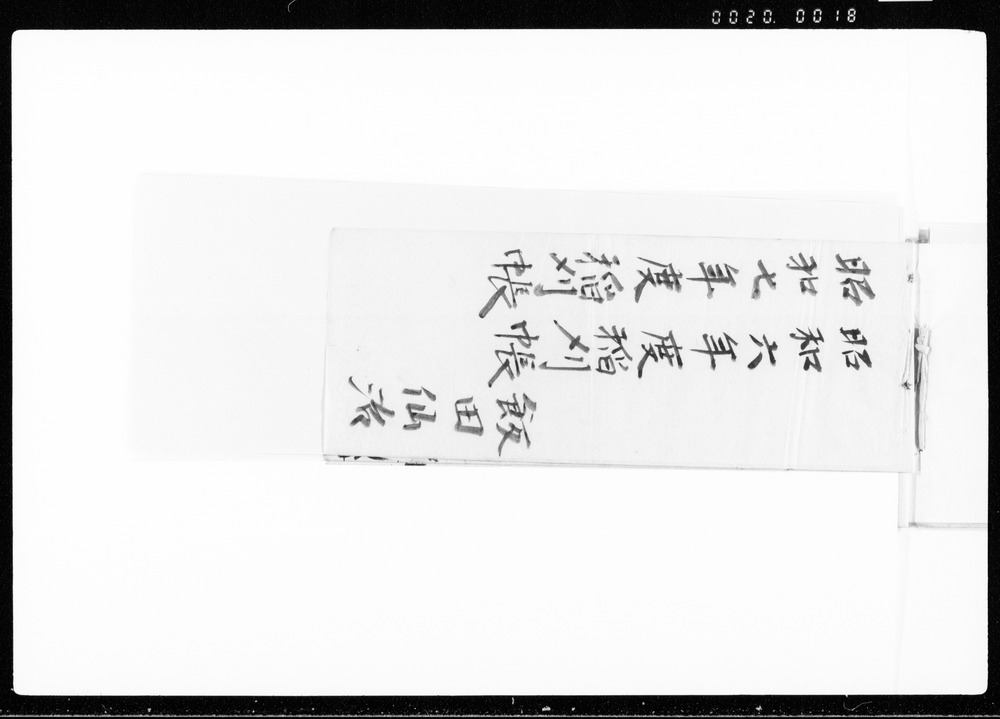 0020. 0018
昭和七年度稲刈帳
昭和六年度稲刈帳
飯田仙治